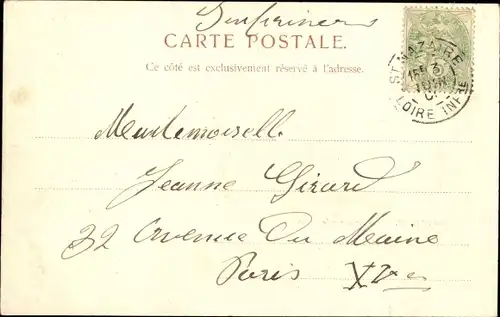 Imprimés
CARTE POSTALE.
Ce côté est exclusivement réservé à l'adresse.
ST NAZAIRE
LOIRE INFRE
Mademoiselle
Jeanne Girard
32 Avenue Du Maine
Paris XVe